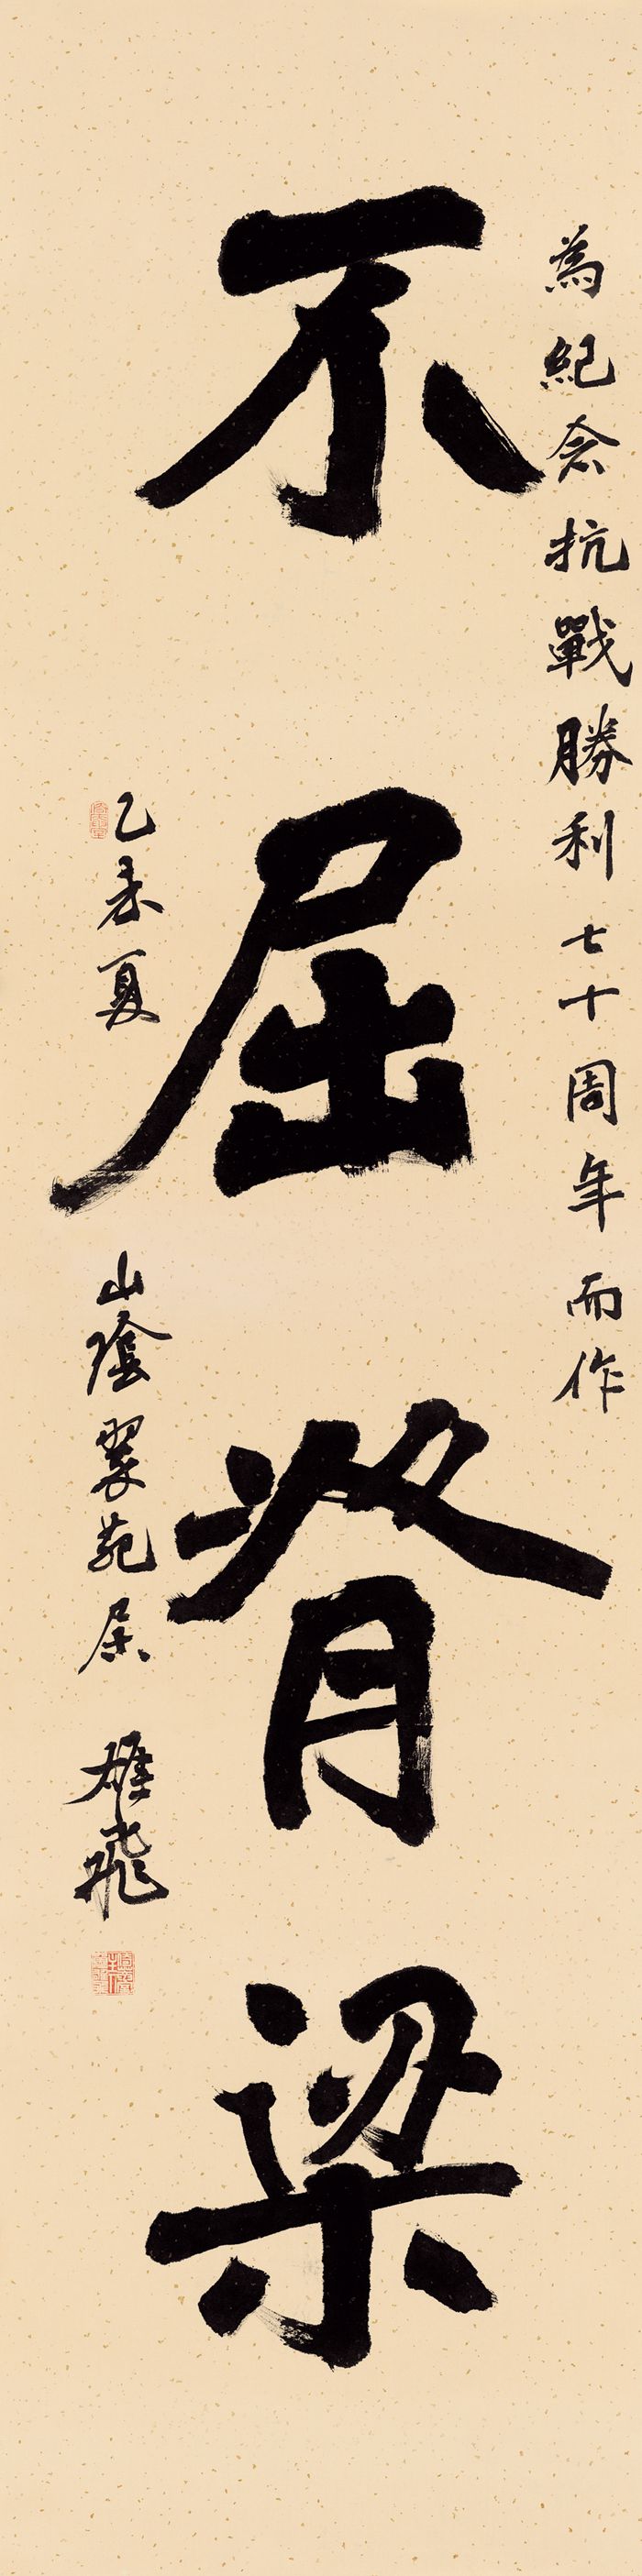 為紀念抗戰勝利七十周年而作
不屈脊梁
乙未夏 山陰翠苑 雄飛